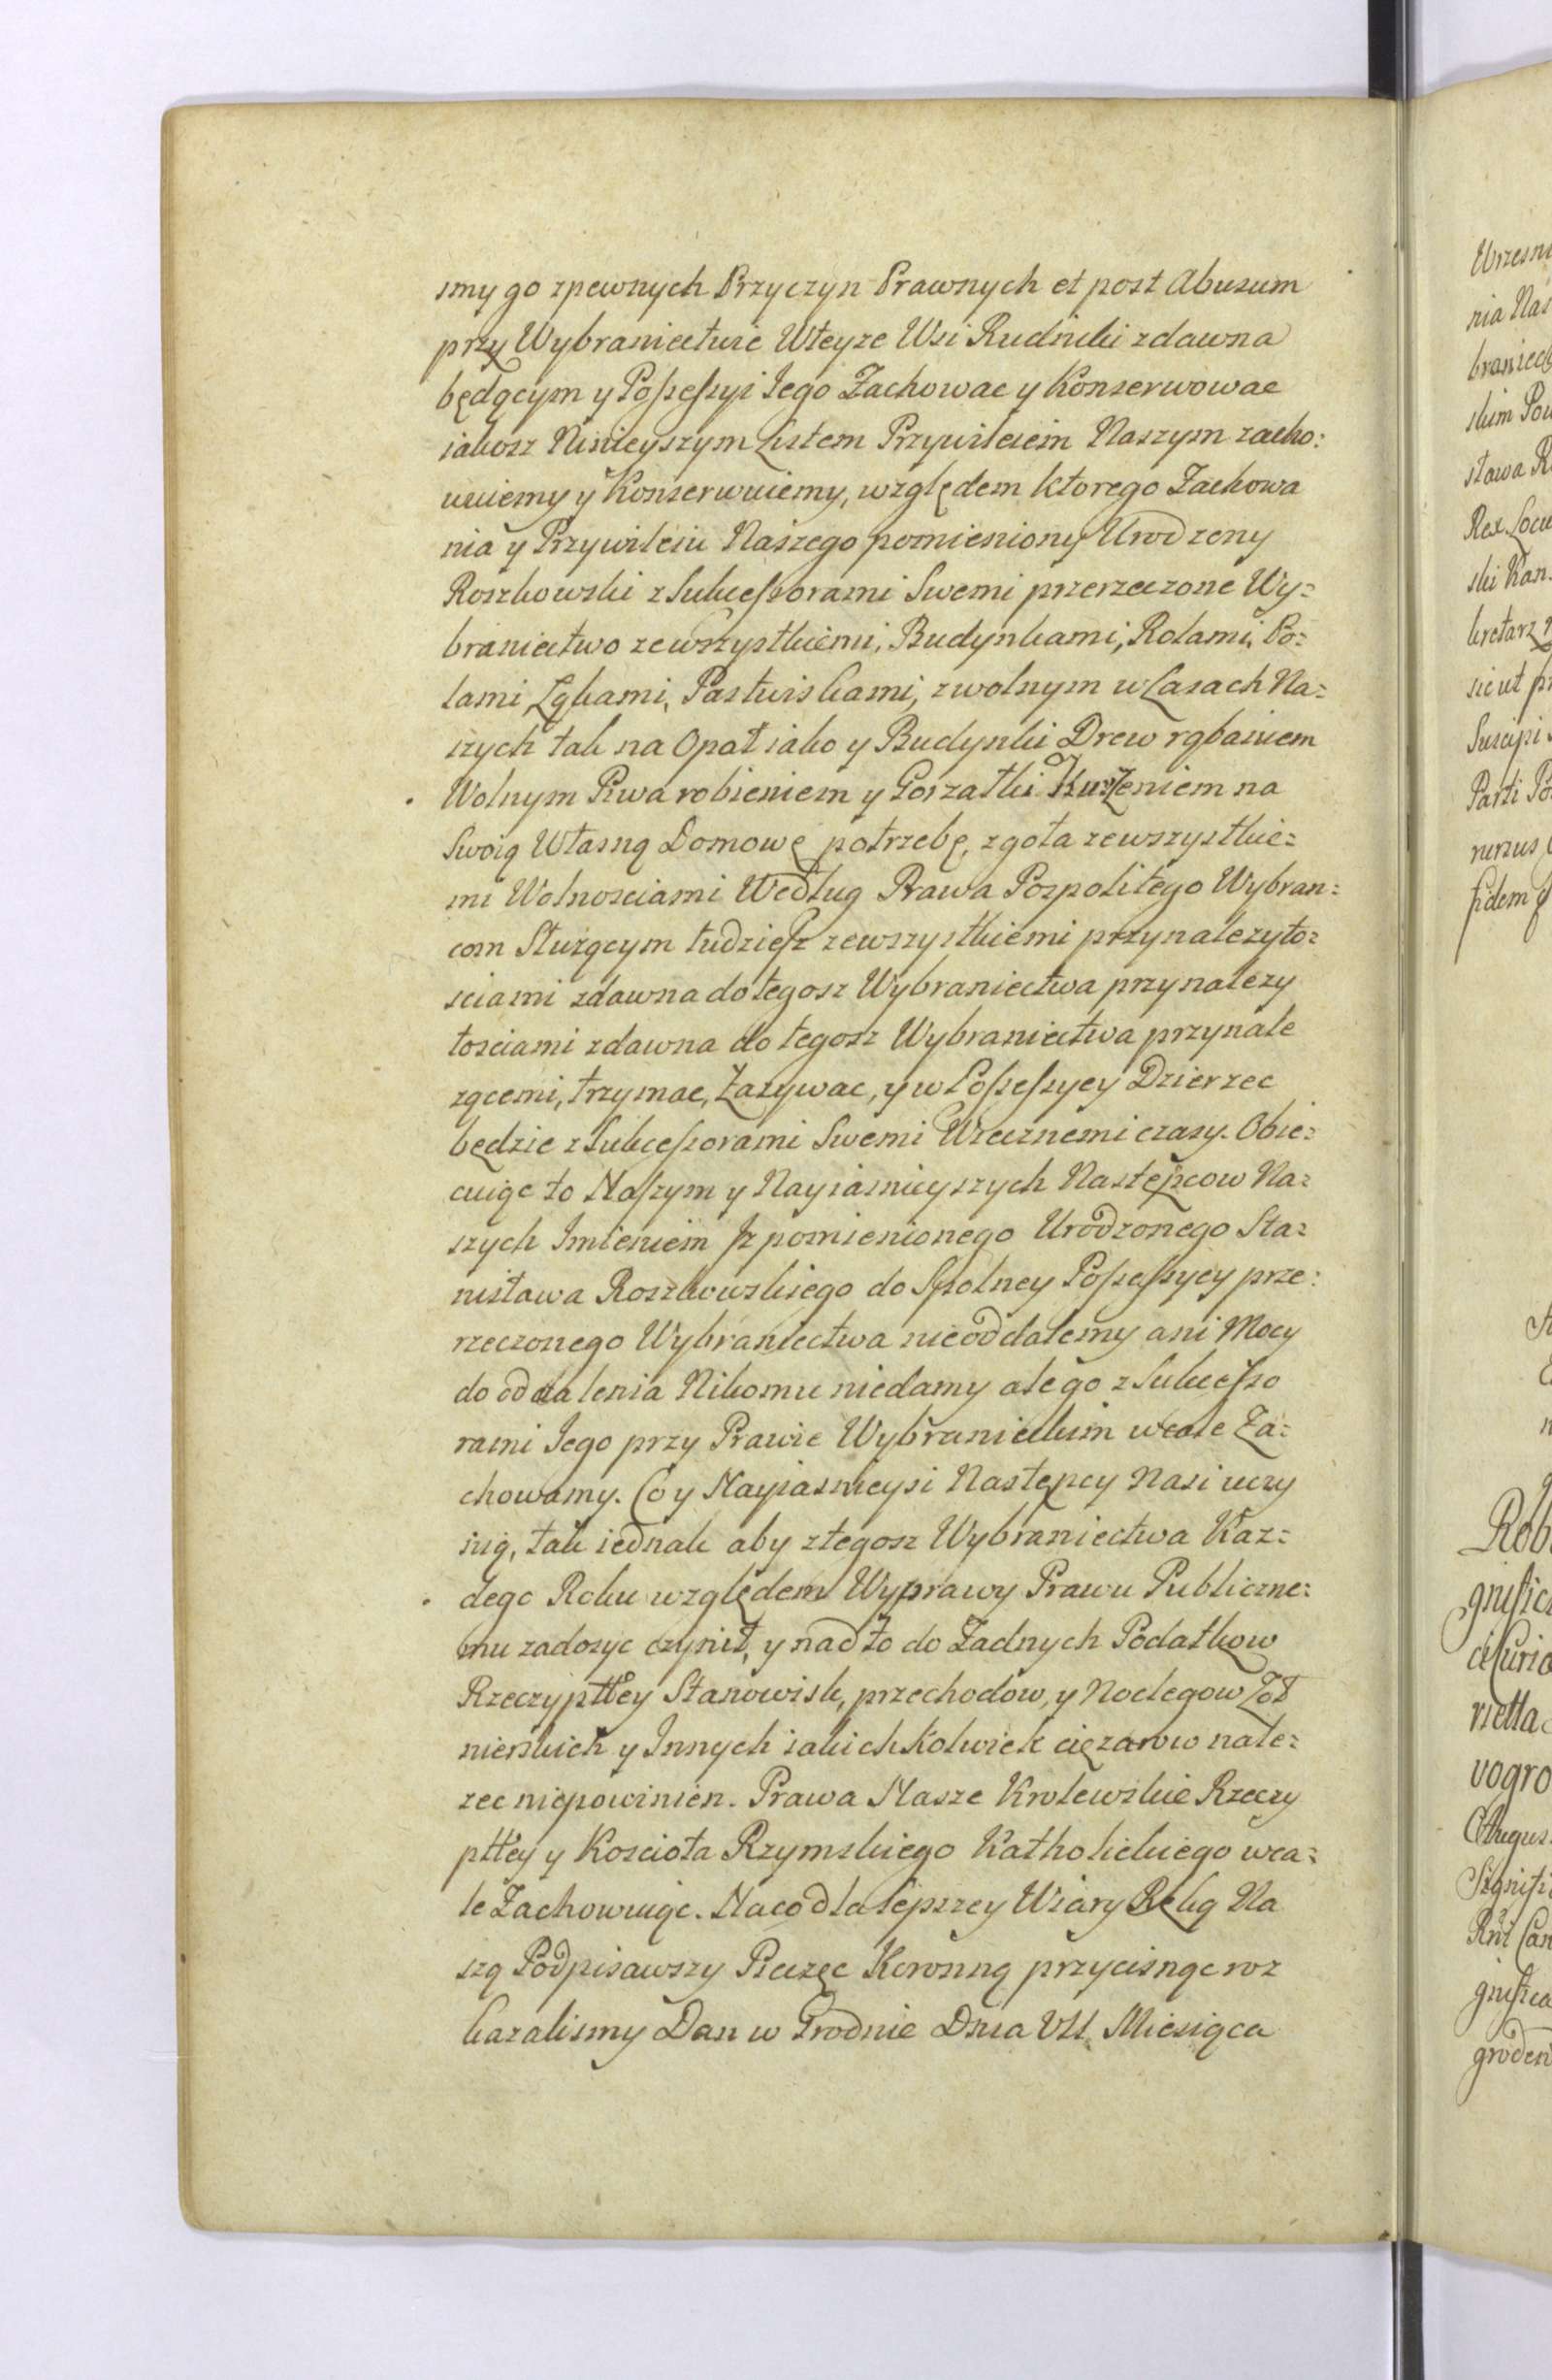 smy go zpewnych Przyczyn Prawnych et post Abusum
przy Wybraniectwie Wteyze Wsi Rudniki zdawna
będącym y Possessyi Jego Zachowac y Konserwowac
iakosz Ninieyszym Listem Przywileiem Naszym zacho:
wuiemy y Konserwuiemy, względem ktorego Zachowa
nia y Przywileiu Naszego pomieniony Urodzony
Roszkowski z Sukcessorami Swemi przerzeczone Wy:
braniectwo zewszystkiemi, Budynkami, Rolami, Po:
lami, Łąkami, Pastwiskami, zwolnym w Lasach Na:
szych tak na Opał iako y Budynki Drew rąbaniem
Wolnym Piwa robieniem y Gorzałki Kurzeniem na
Swoią Własną Domowę potrzebę, zgoła zewszystkie:
mi Wolnosciami Według Prawa Pospolitego Wybran:
com Służącym tudziesz zewszystkiemi przynalezyto:
sciami zdawna do tegosz Wybraniectwa przynalezy
tosciami zdawna do tegosz Wybraniectwa przynale
zącemi, trzymac, Zazywac, y w Possessyey Dzierzec
będzie z Sukcessorami Swemi Wiecznemi czasy. Obie:
cuiąc to Naszym y Nayiasnieyszych Następcow Na:
szych Imieniem Jz pomienionego Urodzonego Sta:
nisława Roszkowskiego do Spolney Possessyey prze:
rzeczonego Wybraniectwa nieoddalemy ani Mocy
do oddalenia Nikomu niedamy ale go z Sukcesso
rami Jego przy Prawie Wybranieckim wcale Za:
chowamy. Co y Nayiasnieysi Następcy Nasi uczy
nią, tak iednak aby ztegosz Wybraniectwa Kaz:
dego Roku względem Wyprawy Prawu Publiczne:
mu zadosyc czynił, y nad to do Zadnych Podatkow
Rzeczyptley Stanowisk, przechodow, y Noclegow Zoł
nierskich y Innych iakichkolwiek cięzarow nale:
zec niepowinien. Prawa Nasze Krolewskie Rzeczy
ptley y Koscioła Rzymskiego Katholickiego wca:
le Zachowuiąc. Na co dla lepszey Wiary Ręką Na
szą Podpisawszy Pieczęc Koronną przycisnąc roz
kazalismy Dan w Grodnie Dnia VII Miesiąca